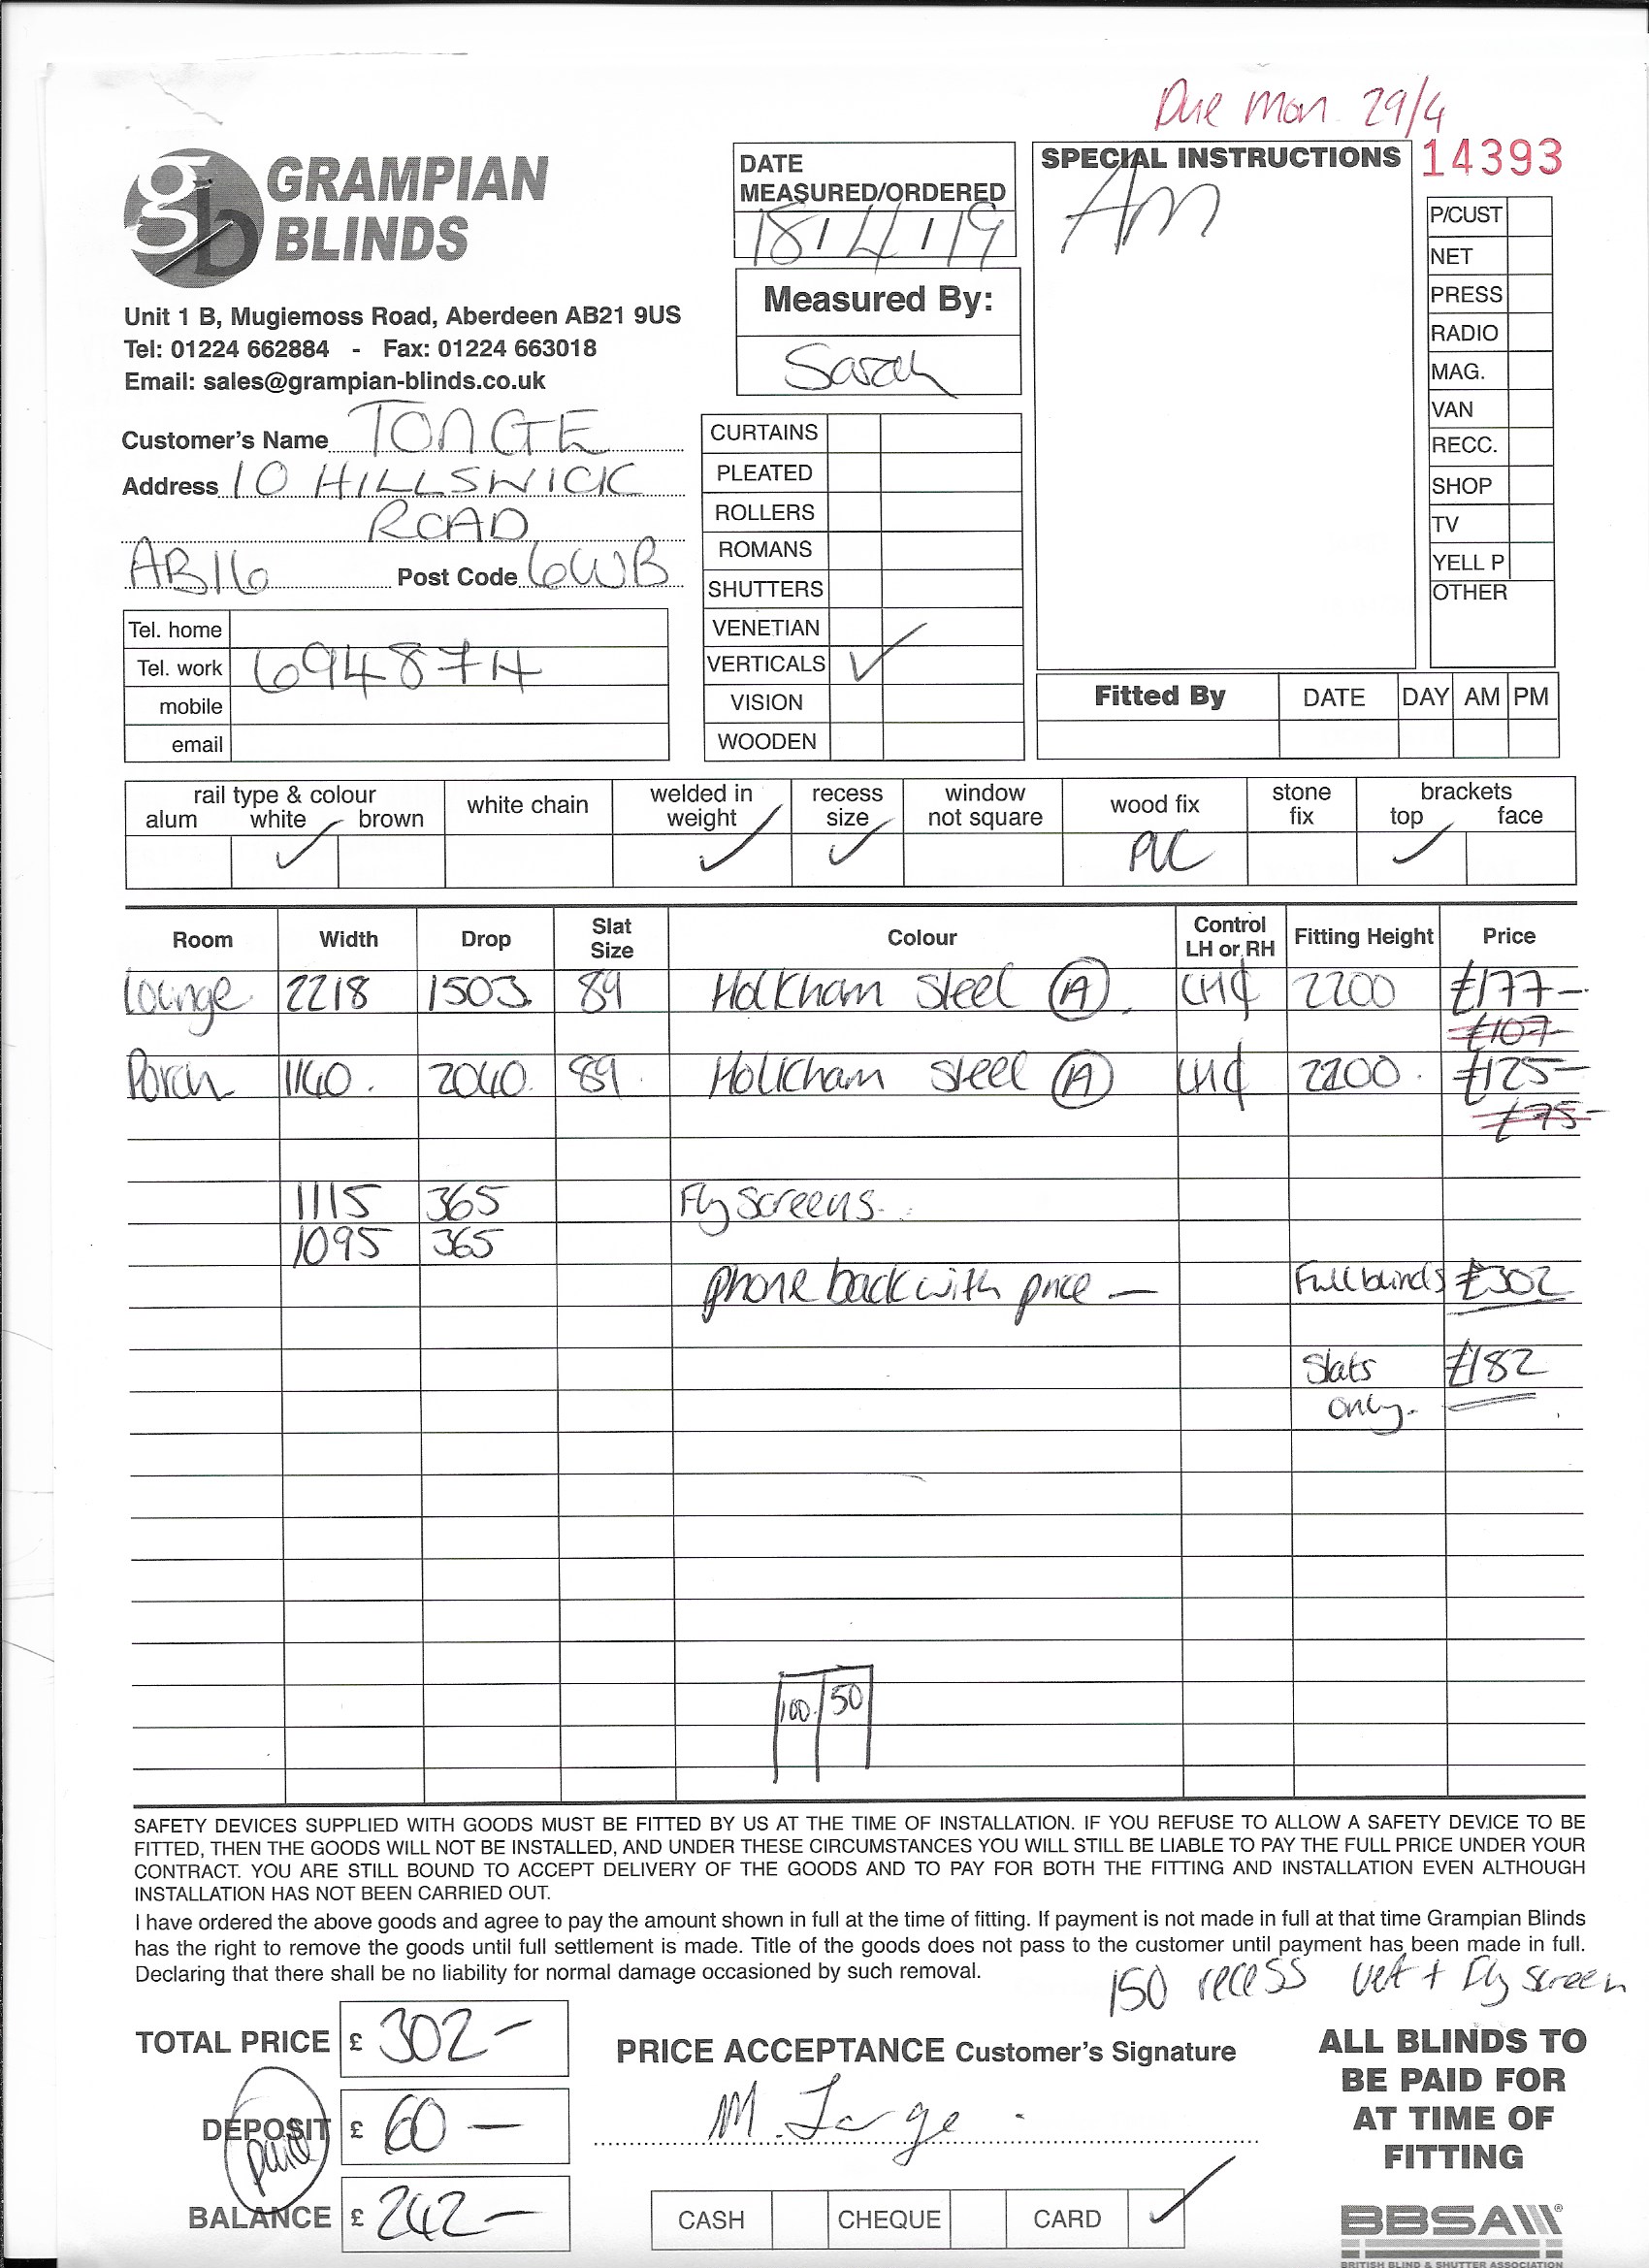 Due Mon 29/4
GRAMPIAN
BLINDS
DATE
MEASURED/ORDERED
18/4/19
SPECIAL INSTRUCTIONS
14393
AM
Measured By:
Sarah
Unit 1 B, Mugiemoss Road, Aberdeen AB21 9US
Tel: 01224 662884 - Fax: 01224 663018
Email: sales@grampian-blinds.co.uk
Customer's Name TONGE
Address 10 HILLSWICK
ROAD
AB16 Post Code 6WB
Tel. home
Tel. work 694874
mobile
email
CURTAINS
PLEATED
ROLLERS
ROMANS
SHUTTERS
VENETIAN
VERTICALS ✓
VISION
WOODEN
P/CUST
NET
PRESS
RADIO
MAG.
VAN
RECC.
SHOP
TV
YELL P
OTHER
Fitted By DATE DAY AM PM
rail type & colour
alum white brown
white chain
welded in
weight
recess
size
window
not square
wood fix
stone
fix
brackets
top face
✓ ✓ ✓ PVC ✓
Room Width Drop Slat Size Colour Control LH or RH Fitting Height Price
Lounge 2218 1503 89 Holkham Steel A LH₵ 2200 £177-
£107-
Porch 1140. 2040. 89. Holkham Steel A LH₵ 2200. £125-
£75-
1115 365 Fly Screens.
1095 365
phone back with price - Full blinds £302
Slats £182
only.
100. 50
SAFETY DEVICES SUPPLIED WITH GOODS MUST BE FITTED BY US AT THE TIME OF INSTALLATION. IF YOU REFUSE TO ALLOW A SAFETY DEVICE TO BE
FITTED, THEN THE GOODS WILL NOT BE INSTALLED, AND UNDER THESE CIRCUMSTANCES YOU WILL STILL BE LIABLE TO PAY THE FULL PRICE UNDER YOUR
CONTRACT. YOU ARE STILL BOUND TO ACCEPT DELIVERY OF THE GOODS AND TO PAY FOR BOTH THE FITTING AND INSTALLATION EVEN ALTHOUGH
INSTALLATION HAS NOT BEEN CARRIED OUT.
I have ordered the above goods and agree to pay the amount shown in full at the time of fitting. If payment is not made in full at that time Grampian Blinds
has the right to remove the goods until full settlement is made. Title of the goods does not pass to the customer until payment has been made in full.
Declaring that there shall be no liability for normal damage occasioned by such removal.
150 recess vert + Fly screen
TOTAL PRICE £ 302-
DEPOSIT £ 60-
paid
BALANCE £ 242-
PRICE ACCEPTANCE Customer's Signature
M.
CASH CHEQUE CARD ✓
ALL BLINDS TO
BE PAID FOR
AT TIME OF
FITTING
BBSA
BRITISH BLIND & SHUTTER ASSOCIATION